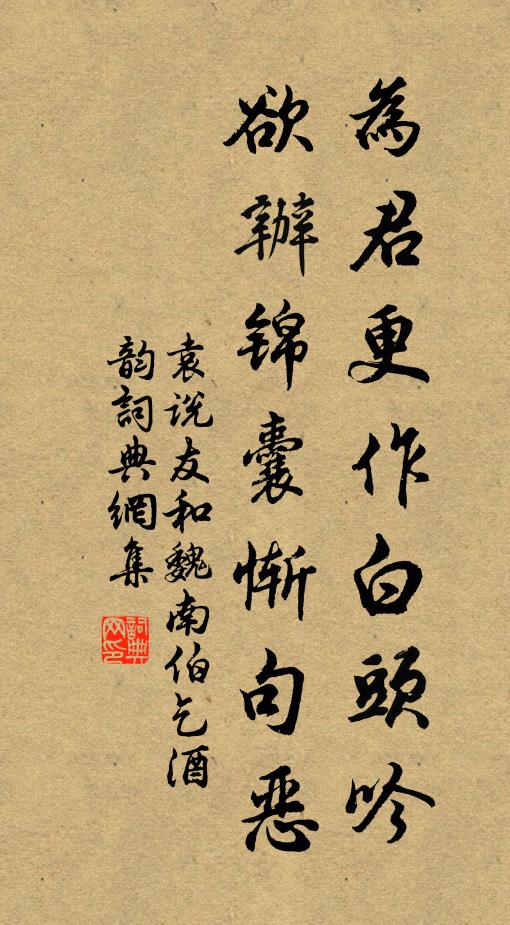 為君更作白頭吟
欲辦錦囊慚句惡
袁说友和魏南伯乞酒
韵詞典網集
詞典
网印